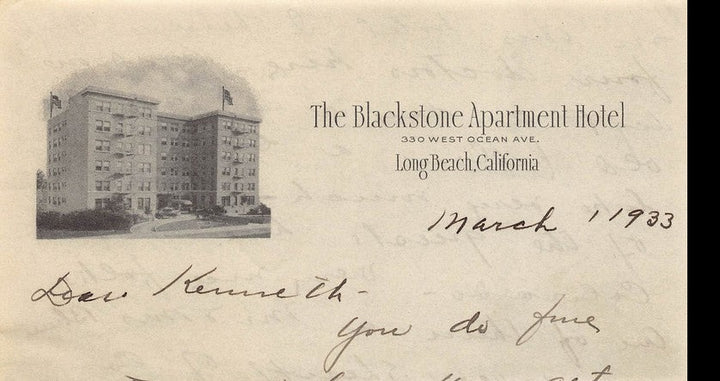 The Blackstone Apartment Hotel
330 WEST OCEAN AVE.
Long Beach, California
March 1 1933
Dear Kenneth -
You do fine